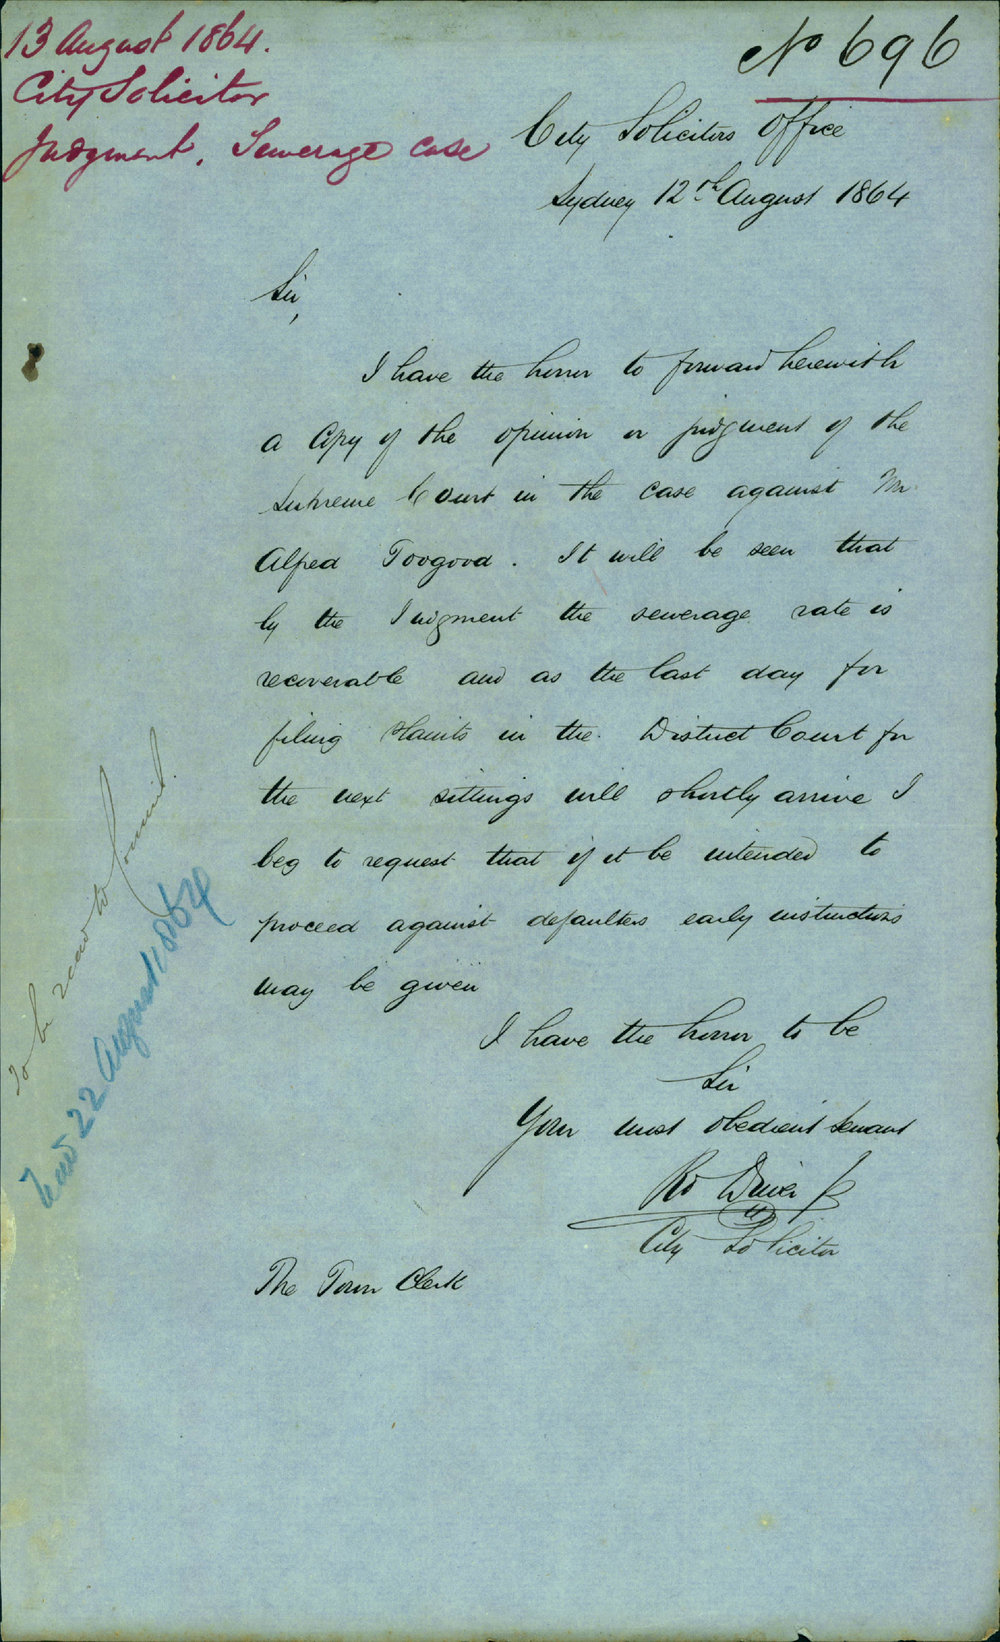 13 August 1864.
City Solicitor
Judgment. Sewerage Case
No 696
City Solicitors Office
Sydney 12th August 1864
Sir,
I have the honor to forward herewith
a Copy of the opinion or judgment of the
Supreme Court in the case against Mr
Alfred Toogood. It will be seen that
by the Judgment the sewerage rate is
recoverable and as the last day for
filing Plaints in the District Court for
the next sittings will shortly arrive I
beg to request that if it be intended to
proceed against defaulters early instructions
may be given
I have the honor to be
Sir
Your most obedient Servant
Rd Driver Jr
City Solicitor
The Town Clerk
To be read to Council.
Read 22 August 1864